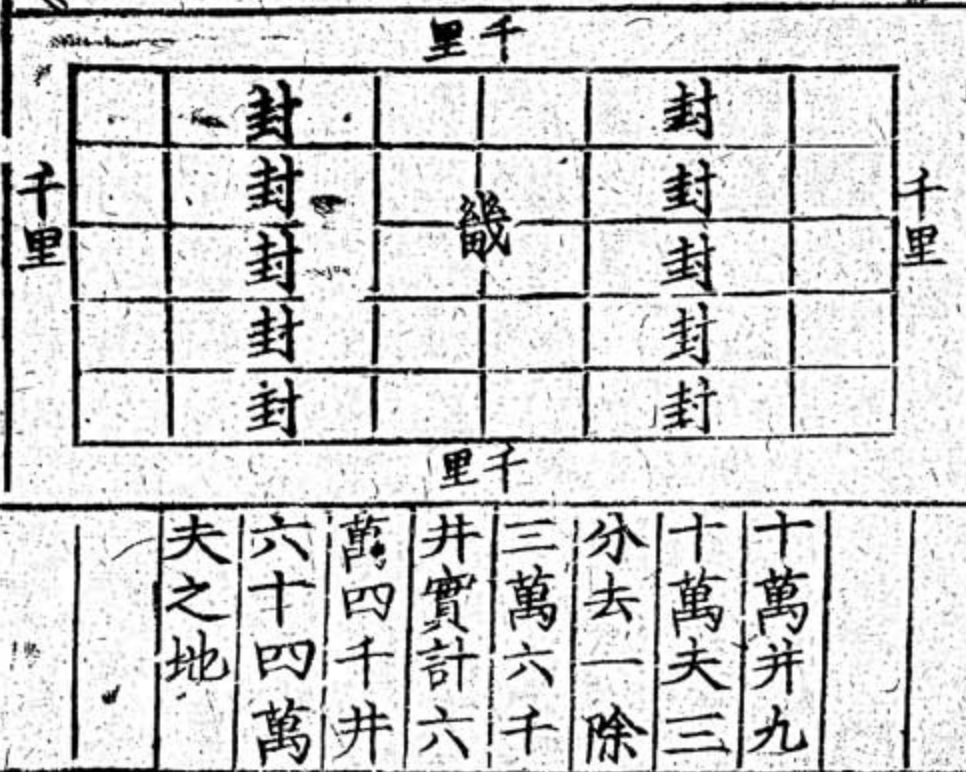 里千
千里
封
封
封
封
封
畿
封
封
封
封
封
千里
里千
十萬井九
十萬夫三
分去一除
三萬六千
井實計六
萬四千井
六十四萬
夫之地